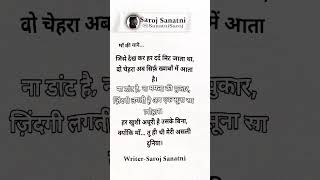 Saroj Sanatni
Saroj Sanatni
माँ की याद...
जिसे देख कर हर दर्द मिट जाता था,
वो चेहरा अब सिर्फ ख्वाबों में आता
है।
ना डांट है, ना ममता की पुकार,
ज़िंदगी लगती है अब एक सूना सा
हर खुशी अधूरी है उसके बिना,
क्योंकि माँ... तू ही थी मेरी असली
दुनिया।
Writer-Saroj Sanatni
वो चेहरा अब
में आता
ना डांट है, ना
पुकार,
ज़िंदगी लगती
सूना सा